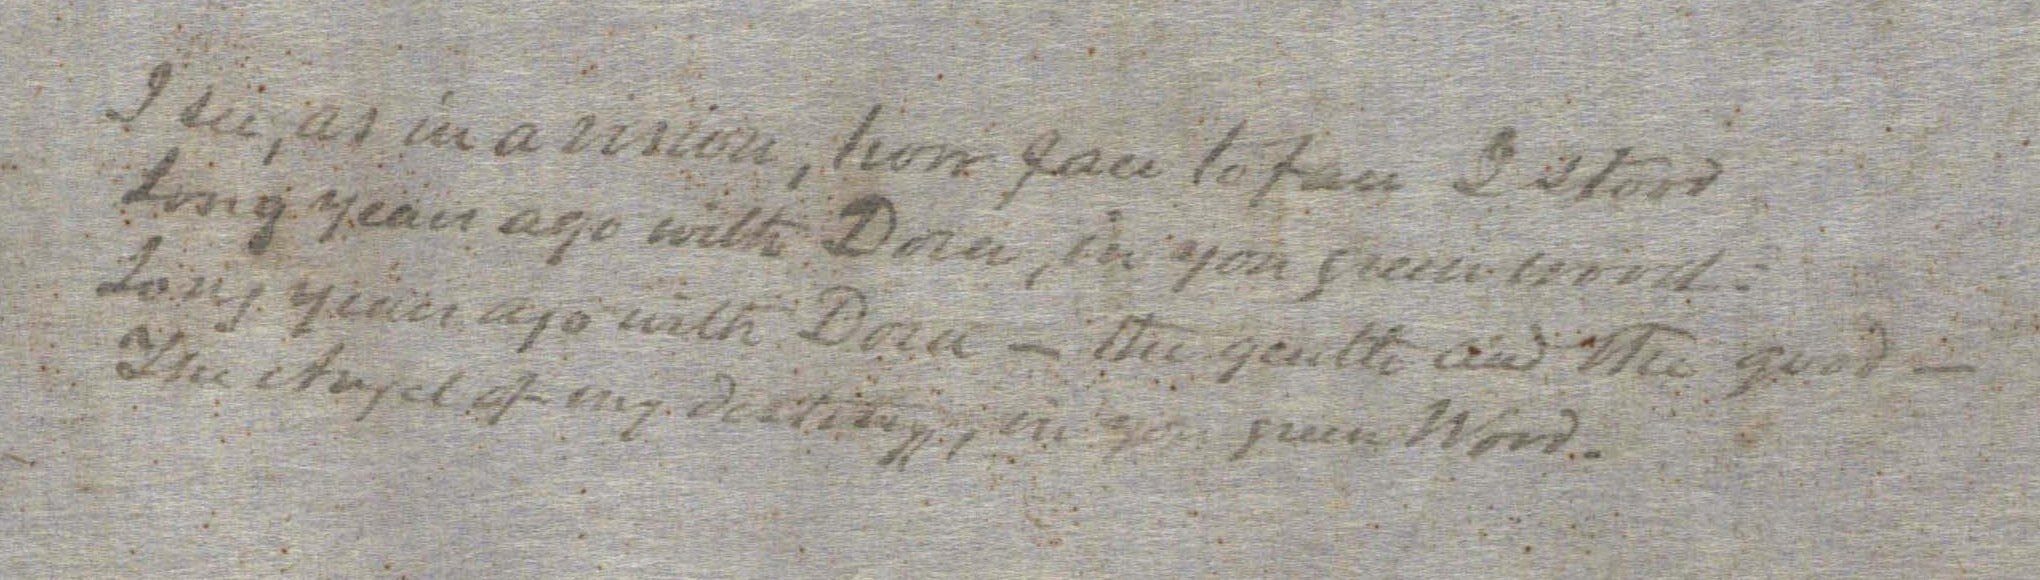 I see, as in a vision, how face to face I stood
Long years ago with Dora, in yon green wood:
Long years ago with Dora — the gentle and the good —
The Angel of my destiny, in yon green Wood.